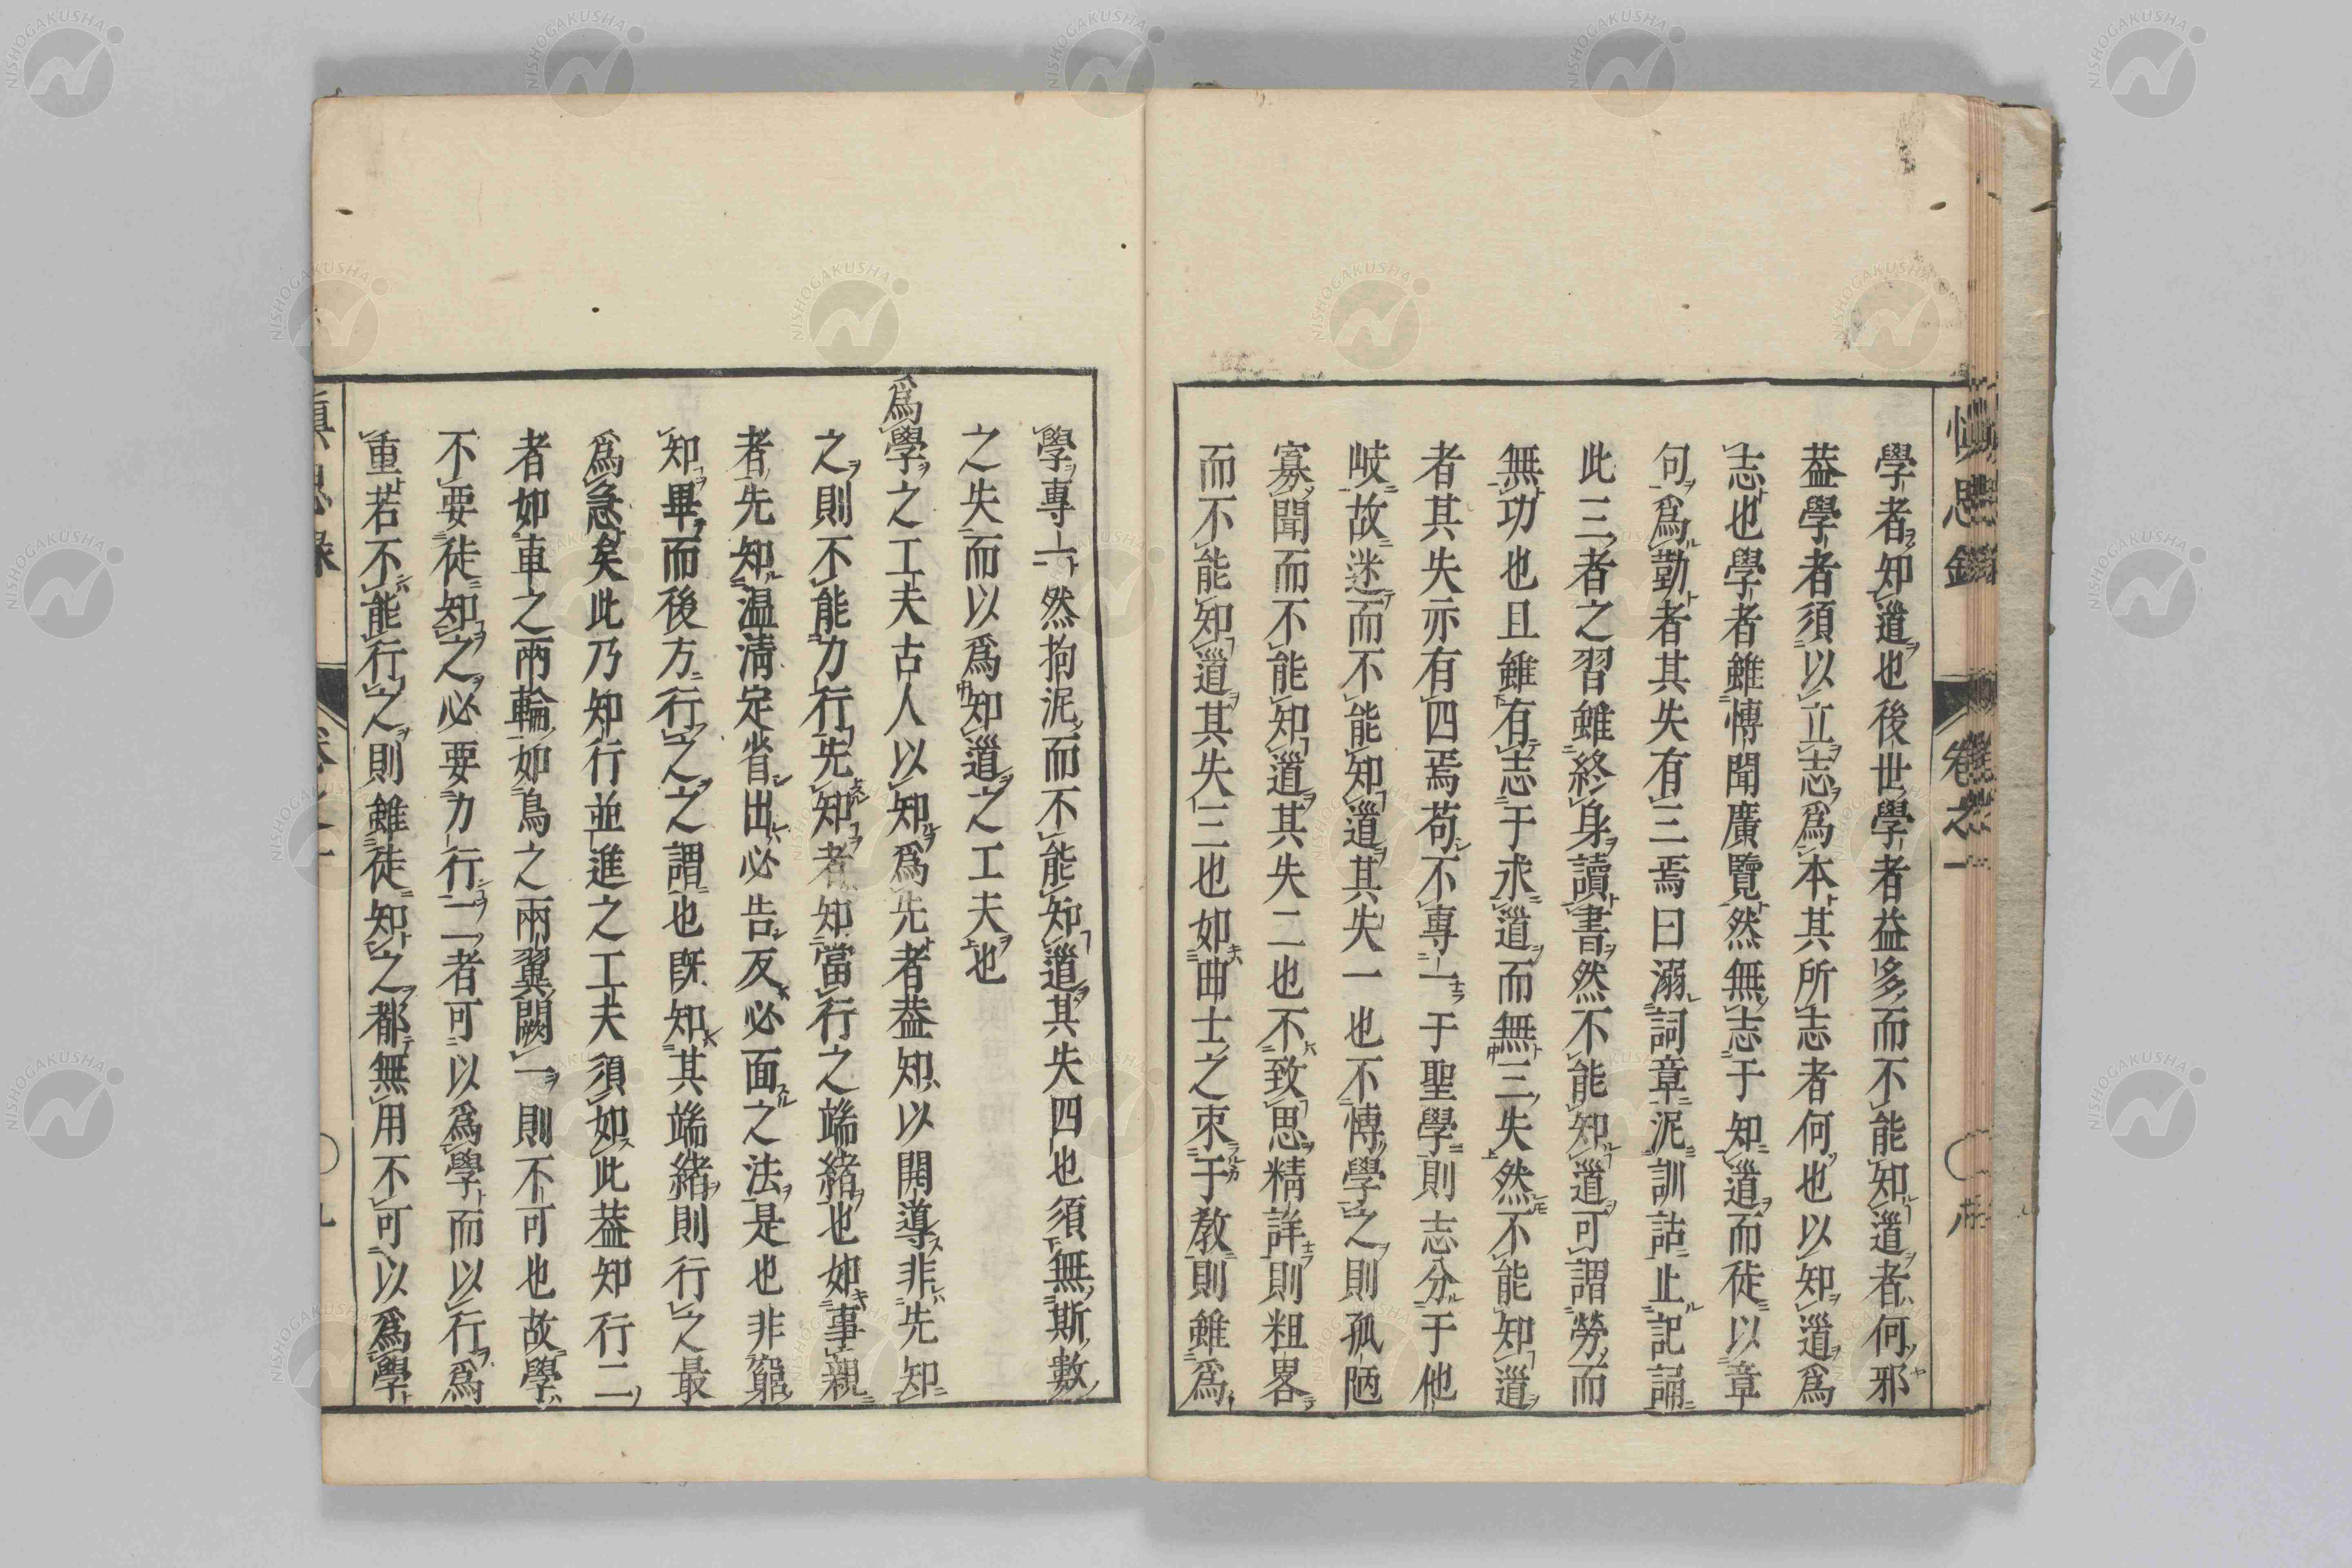 愼思錄 卷之一
學者知道也後世學者益多而不能知道者何邪
葢學者須以立志爲本其所志者何也以知道爲
志也學者雖愽聞廣覽然無志于知道而徒以章
句爲勤者其失有三焉曰溺詞章泥訓詁止記誦
此三者之習雖終身讀書然不能知道可謂勞而
無功也且雖有志于求道而無三失然不能知道
者其失亦有四焉苟不專一于聖學則志分于他
岐故迷而不能知道其失一也不愽學之則孤陋
寡聞而不能知道其失二也不致思精詳則粗畧
而不能知道其失三也如曲士之束于敎則雖爲
學專一然拘泥而不能知道其失四也須無斯數
之失而以爲知道之工夫也
爲學之工夫古人以知爲先者葢知以開導非先知
之則不能力行先知者知當行之端緖也如事親
者先知温凊定省出必告反必面之法是也非窮
知畢而後方行之之謂也旣知其端緖則行之最
爲急矣此乃知行並進之工夫須如此葢知行二
者如車之兩輪如鳥之兩翼闕一則不可也故學
不要徒知之必要力行二者可以爲學而以行爲
重若不能行之則雖徒知之都無用不可以爲學